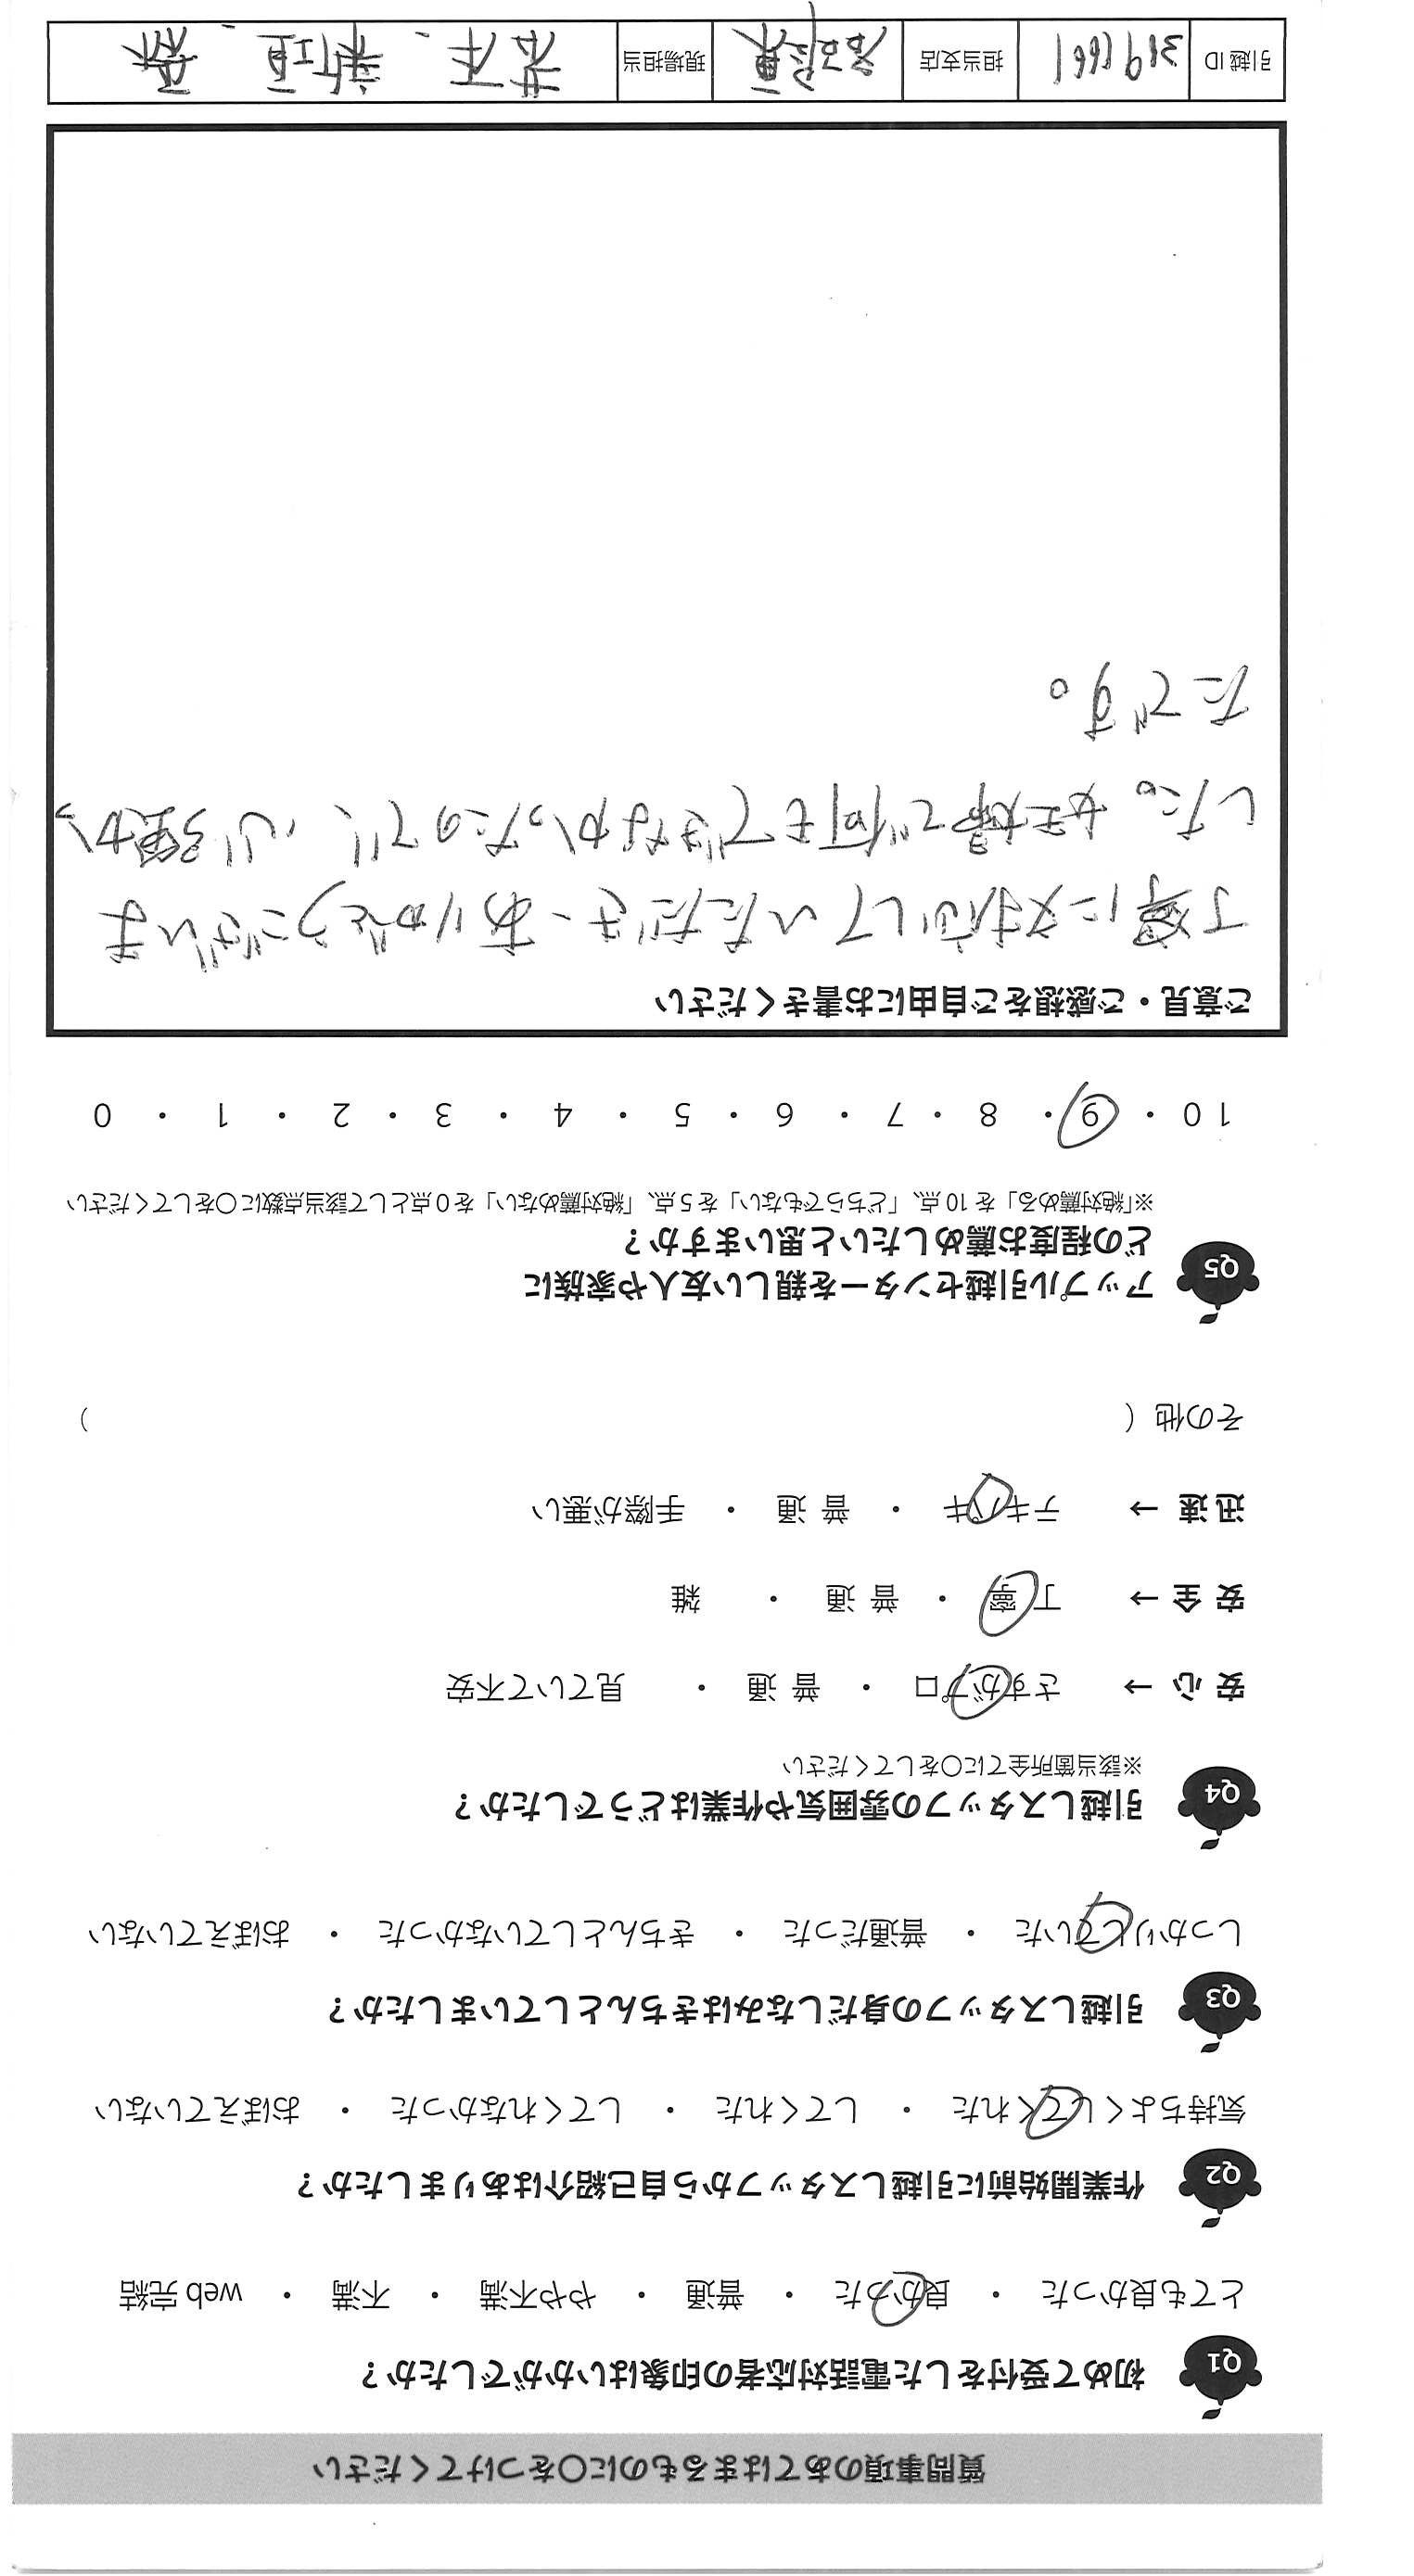 質問事項のあてはまるものに〇をつけてください
Q1 初めて受付をした電話対応者の印象はいかがでしたか？
とても良かった ・ 良かった ・ 普通 ・ やや不満 ・ 不満 ・ web 完結
Q2 作業開始前に引越しスタッフから自己紹介はありましたか？
気持ちよくしてくれた ・ してくれた ・ してくれなかった ・ おぼえていない
Q3 引越しスタッフの身だしなみはきちんとしていましたか？
しっかりしていた ・ 普通だった ・ きちんとしていなかった ・ おぼえていない
Q4 引越しスタッフの雰囲気や作業はどうでしたか？
※該当箇所全てに〇をしてください
安 心 → さすがプロ ・ 普 通 ・ 見ていて不安
安 全 → 丁 寧 ・ 普 通 ・ 雑
迅 速 → テキパキ ・ 普 通 ・ 手際が悪い
その他（ ）
Q5 アップル引越センターを親しい友人や家族に
どの程度お薦めしたいと思いますか？
※「絶対薦める」を 10 点、「どちらでもない」を 5 点、「絶対薦めない」を 0 点として該当点数に〇をしてください
10 ・ 9 ・ 8 ・ 7 ・ 6 ・ 5 ・ 4 ・ 3 ・ 2 ・ 1 ・ 0
ご意見・ご感想をご自由にお書きください
丁寧に対応していただき、ありがとうございま
した。妊婦で何もできなかったので、心強かっ
たです。
引越 ID 担当支店 現場担当 新垣、